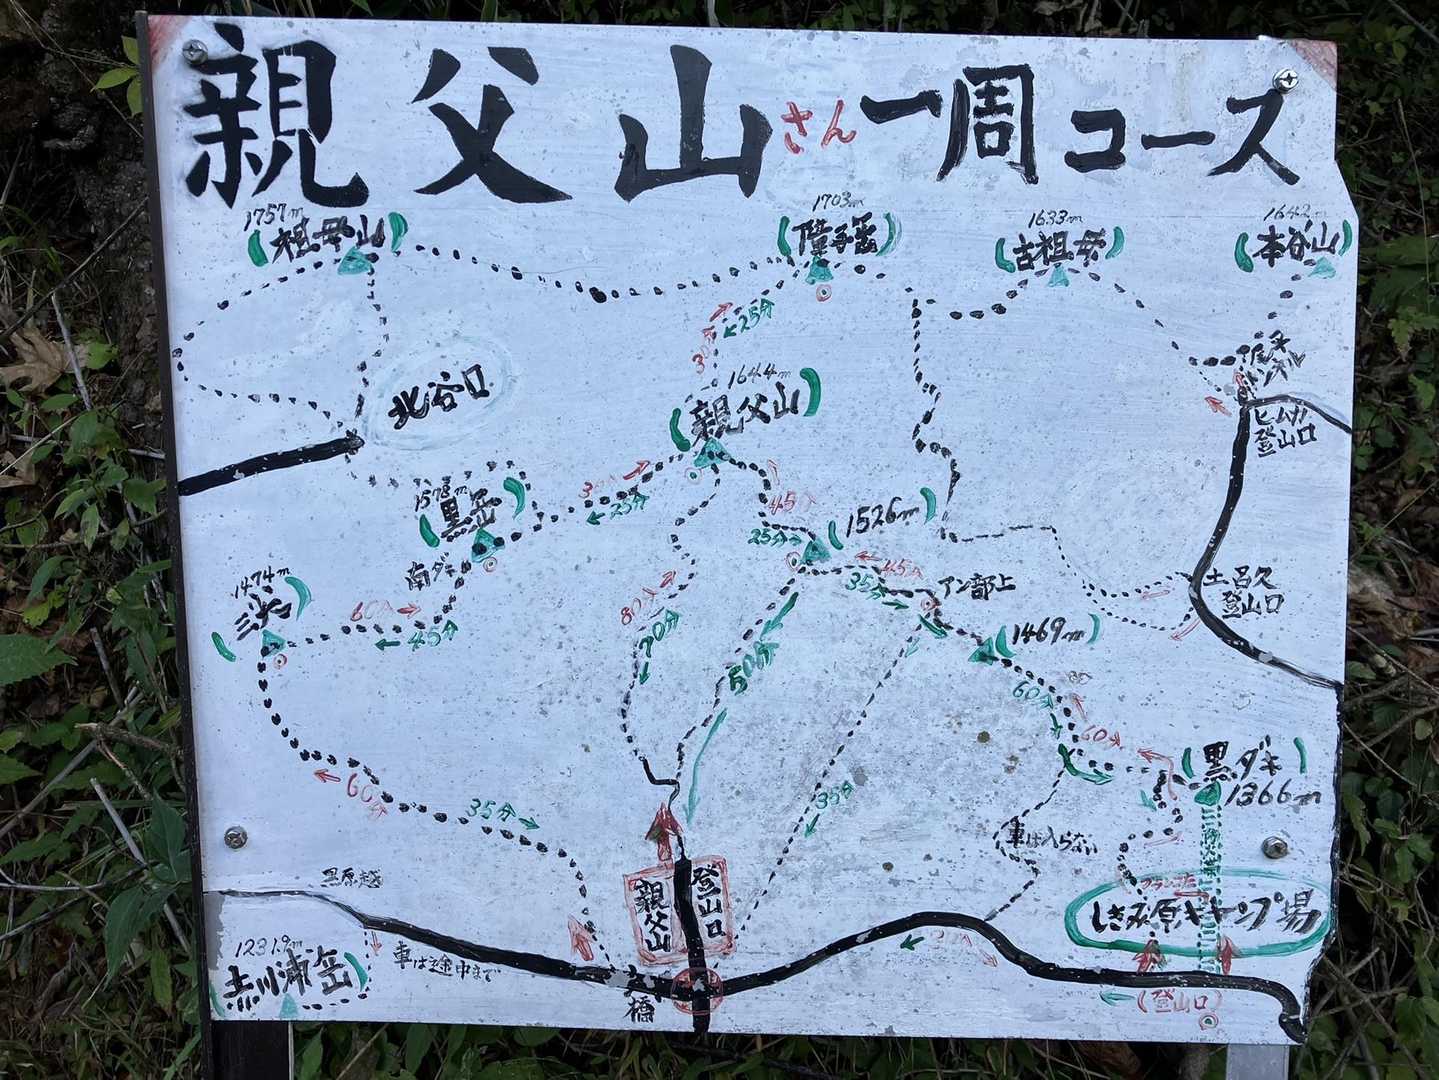 親父山さん一周コース
1757m
祖母山
1703m
障子岳
1633m
古祖母
1642m
本谷山
30分
25分
尾平トンネル
1644m
親父山
北谷口
ヒムカ登山口
1578m
黒岳
30分
25分
45分
25分
1526m
南ダキ
45分
35分
アン部上
土呂久登山口
1474m
三尖
60分
45分
80分
70分
50分
1469m
60分
60分
黒ダキ
1366m
60分
35分
35分
車は入らない
黒原越
親父山登山口
しきみ原キャンプ場
1231.9m
赤川浦岳
車は途中まで
橋
20分
(登山口)